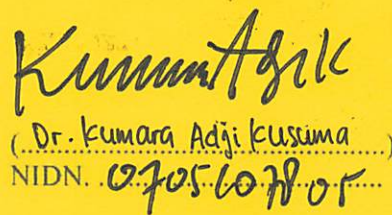 (Dr. Kumara Adji Kusuma)
NIDN. 0705107805